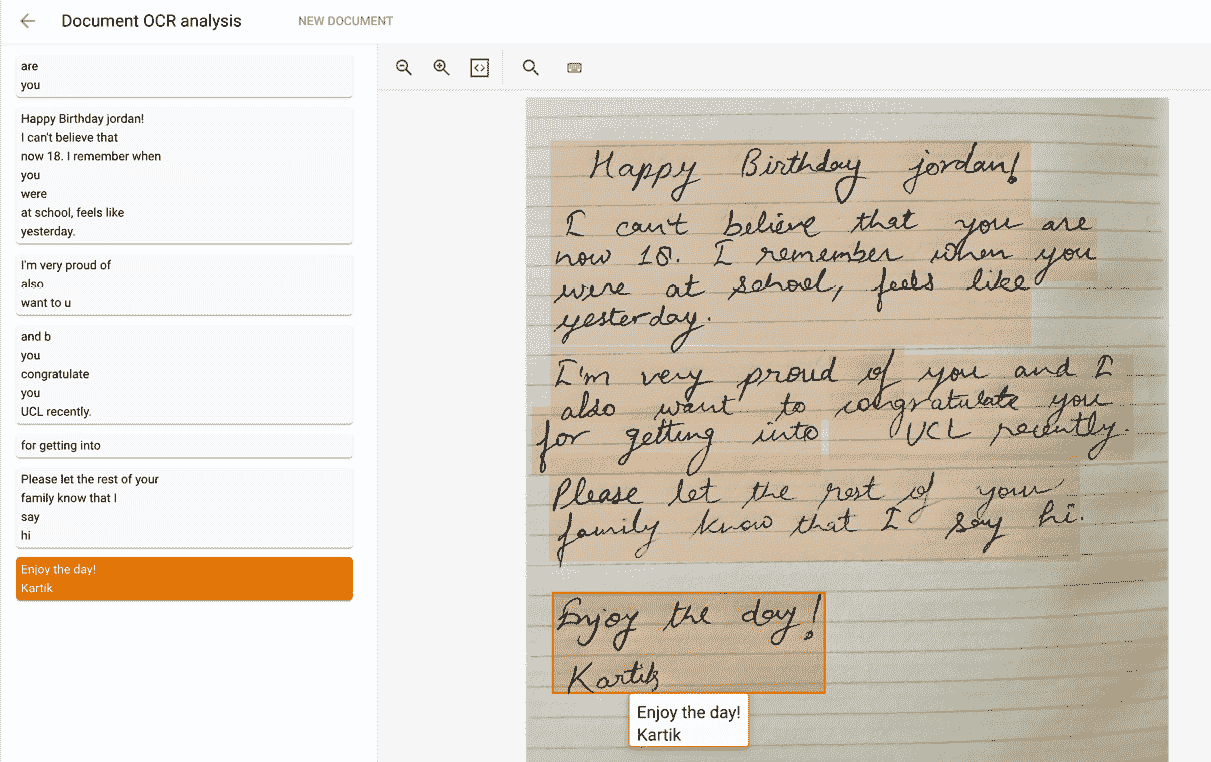 Document OCR analysis
NEW DOCUMENT
are
you
Happy Birthday jordan!
I can't believe that
now 18. I remember when
you
were
at school, feels like
yesterday.
I'm very proud of
also
want to u
and b
you
congratulate
you
UCL recently.
for getting into
Please let the rest of your
family know that I
say
hi
Enjoy the day!
Kartik
Happy Birthday jordan!
I can't believe that you are
now 18. I remember when you
were at school, feels like
yesterday.
I'm very proud of you and I
also want to congratulate you
for getting into UCL recently.
Please let the rest of your
family know that I say hi.
Enjoy the day!
Kartik
Enjoy the day!
Kartik